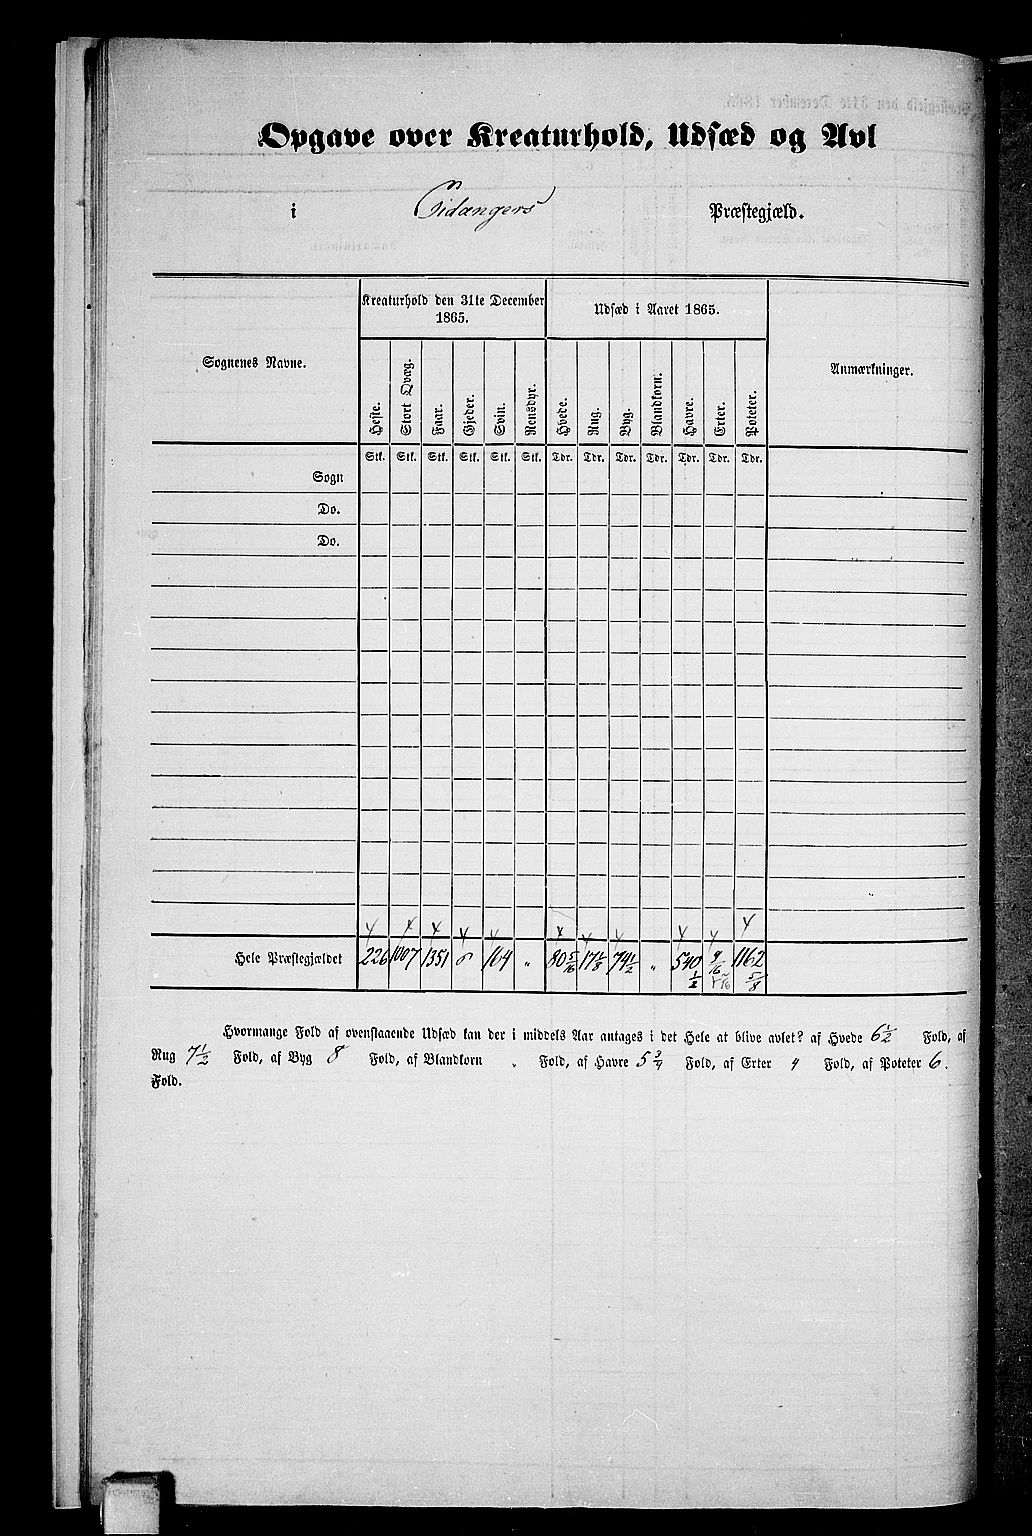 Opgave over Kreaturhold, Udsæd og Avl
i Eidangers Præstegjæld.
Sognenes Navne.
Kreaturhold den 31te December 1865.
Udsæd i Aaret 1865.
Anmærkninger.
Heste. Stort Qvæg. Faar. Gjeder. Svin. Rensdyr. Hvede. Rug. Byg. Blandkorn. Havre. Erter. Poteter.
Stk. Stk. Stk. Stk. Stk. Stk. Tdr. Tdr. Tdr. Tdr. Tdr. Tdr. Tdr.
Sogn
Do.
Do.
Hele Præstegjældet 226 1007 1351 164 " 80 5/16 74 1/2 " 540 1/2 1162 5/8
Hvormange Fold af ovenstaaende Udsæd kan der i middels Aar antages i det Hele at blive avlet? af Hvede 6 1/2 Fold, af
Rug 7 1/2 Fold, af Byg 8 Fold, af Blandkorn " Fold, af Havre 5 3/4 Fold, af Erter 4 Fold, af Poteter 6.
Fold.